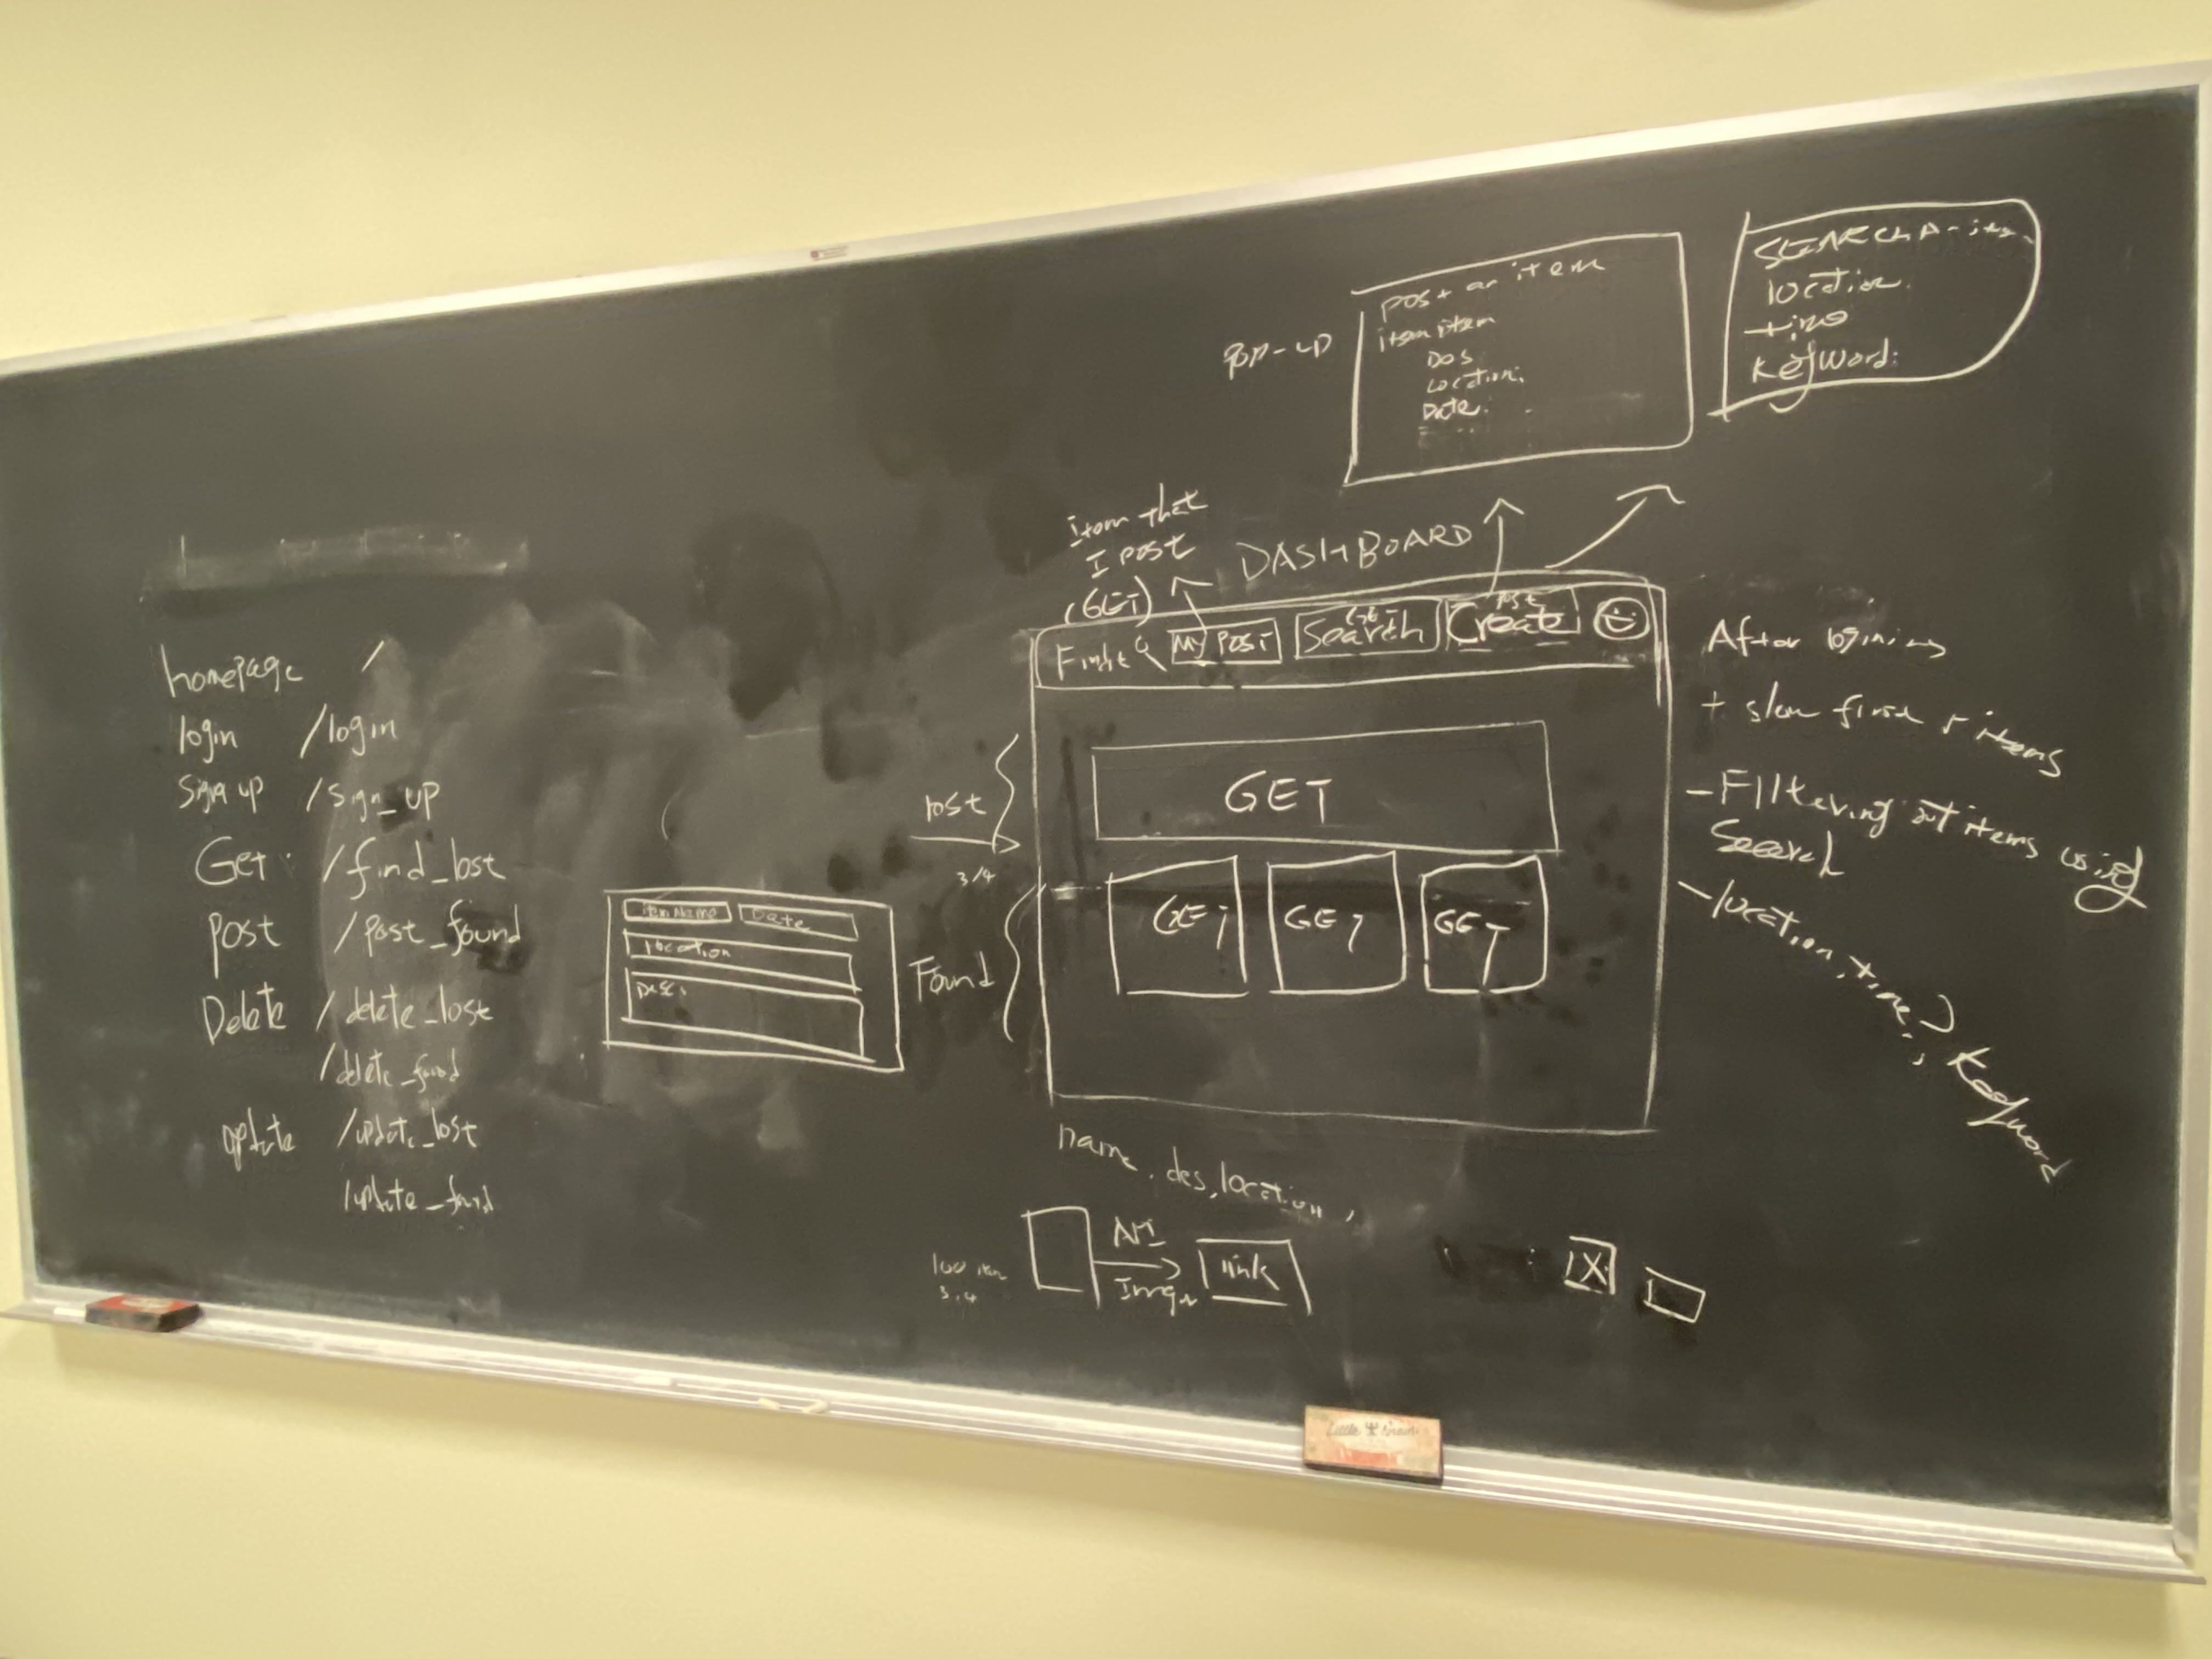 homepage /
login /login
sign up /sign_up
Get /find_lost
Post /post_found
Delete /delete_lost
/delete_found
update /update_lost
/update_found
Item Name Date
location
Des:
pop-up
post an item
item item
Des
Location:
Date:
SEARCH A-item
location:
time
keyword:
Item that
I post
(GET)
DASHBOARD
My POST
Get
Search
Post
Create
lost
3/4
GET
Found
GET GET GET
name, des, location,
100 item
3,4
API
Imgur
link
After logining
+ show first items
- Filtering out items using
Search
- location, time, keyword
X
Little Brain